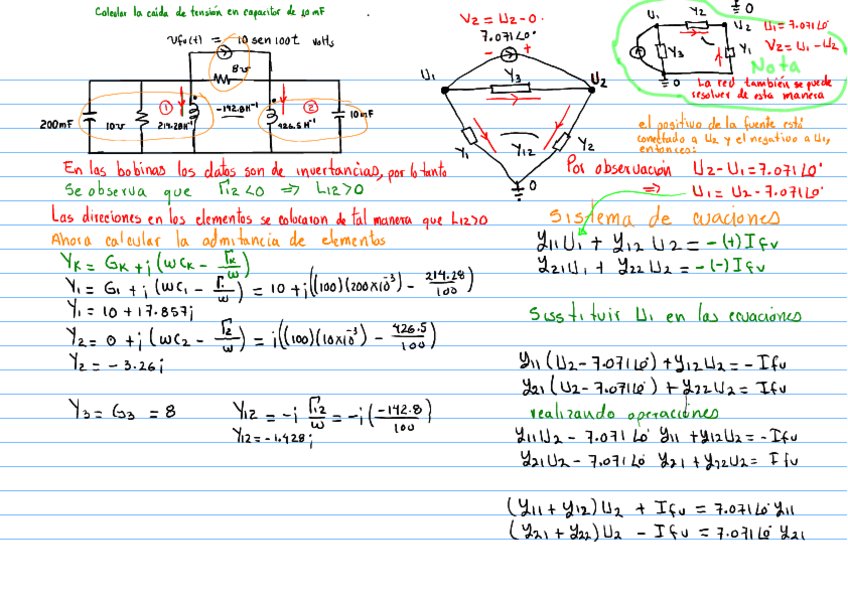 Calcular la caída de tensión en capacitor de 10 mF
Vfv(t) = 10 sen 100t volts
8℧
200mF
10℧
①
214.28H⁻¹
-142.8H⁻¹
426.5H⁻¹
②
10mF
V₂ = U₂ - 0
7.071∠0°
- +
U₁
Y₃
U₂
Y₁
Y₁₂
Y₂
0
U₁ Y₂ U₂
0
Y₃
Y₁
0
U₁ = 7.071∠0°
V₂ = U₁ - U₂
Nota
La red también se puede
resolver de esta manera
el positivo de la fuente está
conectado a U₂ y el negativo a U₁,
entonces:
En las bobinas los datos son de invertancias, por lo tanto
Se observa que Γ₁₂ < 0 ⇒ L₁₂ > 0
Por observación U₂ - U₁ = 7.071∠0°
⇒ U₁ = U₂ - 7.071∠0°
Las direciones en los elementos se colocaron de tal manera que L₁₂>0
Ahora calcular la admitancia de elementos
Yₖ = Gₖ + j(ωCₖ - Γₖ/ω)
Y₁ = G₁ + j(ωC₁ - Γ₁/ω) = 10 + j((100)(200x10⁻³) - 214.28/100)
Y₁ = 10 + 17.857j
Y₂ = 0 + j(ωC₂ - Γ₂/ω) = j((100)(10x10⁻³) - 426.5/100)
Y₂ = - 3.26j
Y₃ = G₃ = 8
Y₁₂ = -j Γ₁₂/ω = -j(-142.8/100)
Y₁₂ = -1.428j
Sistema de cuaciones
y₁₁U₁ + y₁₂ U₂ = -(+)Ifv
y₂₁U₁ + y₂₂ U₂ = -(-)Ifv
Sustituir U₁ en las ecuaciones
y₁₁(U₂ - 7.071∠0°) + y₁₂U₂ = - Ifv
y₂₁(U₂ - 7.071∠0°) + y₂₂U₂ = Ifv
realizando operaciones
y₁₁U₂ - 7.071∠0° y₁₁ + y₁₂U₂ = - Ifv
y₂₁U₂ - 7.071∠0° y₂₁ + y₂₂U₂ = Ifv
(y₁₁ + y₁₂)U₂ + Ifv = 7.071∠0° y₁₁
(y₂₁ + y₂₂)U₂ - Ifv = 7.071∠0° y₂₁